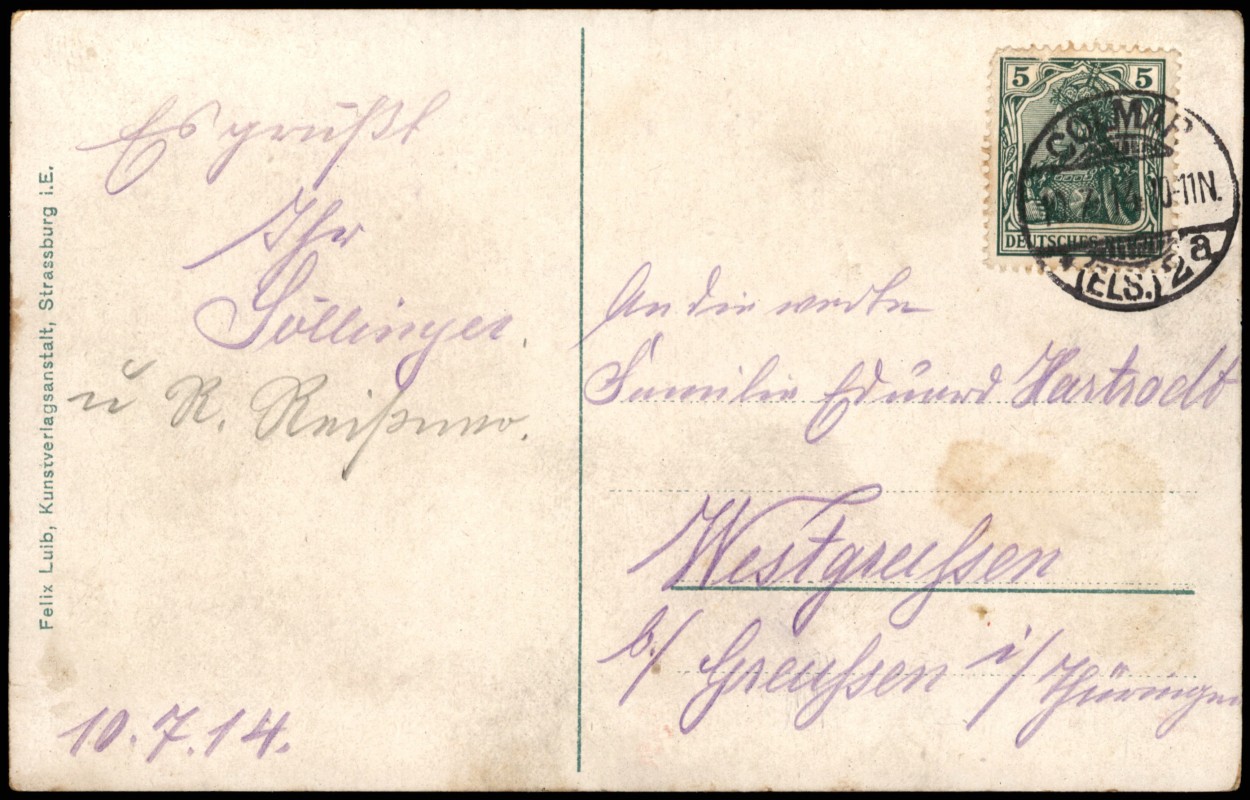 Es grüßt
Ihr
Göllinger.
u R.
10.7.14.
Felix Luib, Kunstverlagsanstalt, Strassburg i.E.
5 5
DEUTSCHES REICH
COLMAR
10-11N.
(ELS.) 2a
An die werte
Familie Eduard Hartrodt
Westgreußen
b/ Greußen i/ Thüringen